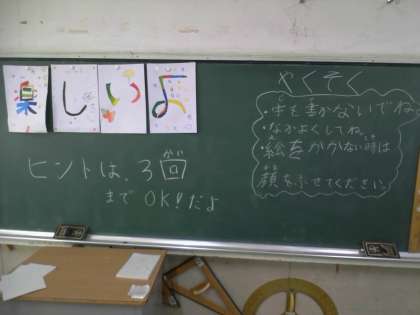 楽しいよ
ヒントは、3回
まで OK!だよ
やくそく
・字を書かないでね。
・なかよくしてね。
・絵をかかない時は
顔をふせてください。